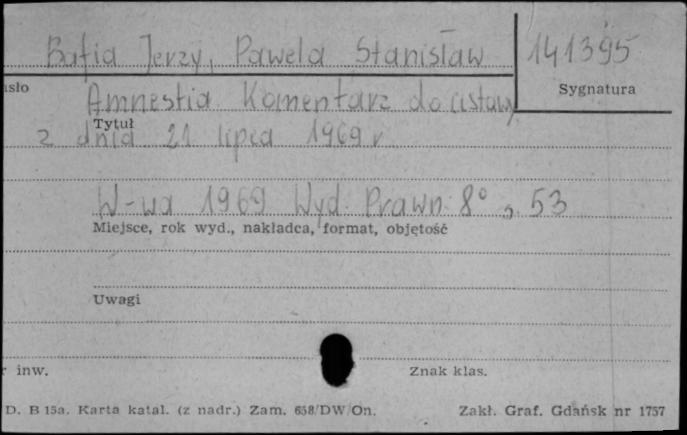 Bafia Jerzy, Pawela Stanisław 141395
isło Sygnatura
Amnestia. Komentarz do ustawy
Tytuł
z dnia 21 lipca 1969 r.
W-wa 1969 Wyd. Prawn. 8° s. 53
Miejsce, rok wyd., nakładca, format, objętość
Uwagi
r inw. Znak klas.
D. B 15a. Karta katal. (z nadr.) Zam. 658/DW/On. Zakł. Graf. Gdańsk nr 1757